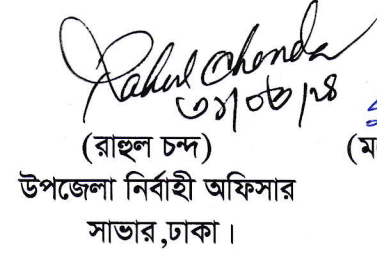 Rahul Chanda
৩১/০৩/২৪
(রাহুল চন্দ) (ম
উপজেলা নির্বাহী অফিসার
সাভার,ঢাকা।